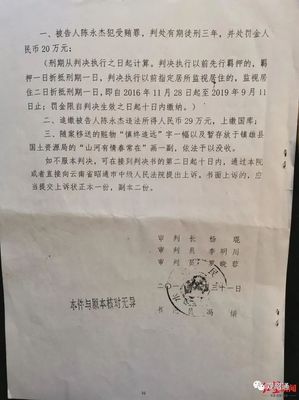 一、被告人陈永杰犯受贿罪，判处有期徒刑三年，并处罚金人
民币20万元；
（刑期从判决执行之日起计算。判决执行以前先行羁押的，羁
押一日折抵刑期一日，判决执行以前指定居所监视居住的，监视居
住二日折抵刑期一日，即自2016年11月28日起至2019年9月11
日止；罚金限自判决生效之日起十日内缴纳。）
二、追缴被告人陈永杰违法所得人民币29万元，上缴国库；
三、随案移送的赃物“慎终追远”字一幅以及暂存放于镇雄县
国土资源局的“山河有情春常在”画一副，依法予以没收。
如不服本判决，可在接到判决书的第二日起十日内，通过本院
或者直接向云南省昭通市中级人民法院提出上诉。书面上诉的，应
当提交上诉状正本一份，副本二份。
审 判 长 杨 琨
审 判 员 李明川
审 判 员
二〇一 三十一日
本件与原本核对无异
书 记 员 冯